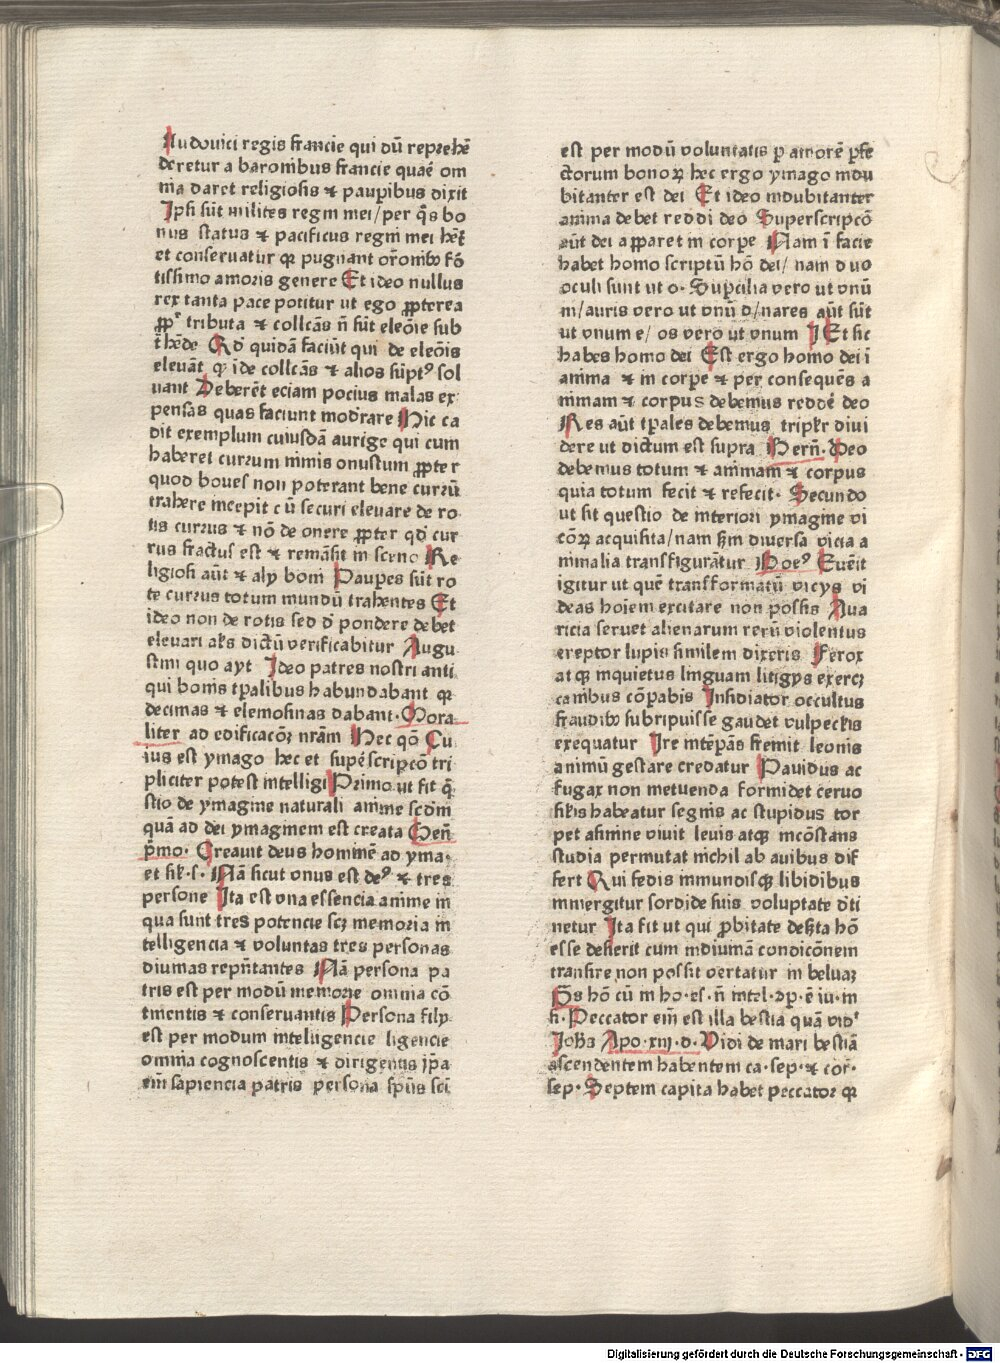 Ludouici regis francie qui dū repreħē
deretur a baronibus francie quaē om
nia daret religiosis ⁊ paupibus dixit
Ipsi sūt milites regni mei/per q̄s bo
nus status ⁊ pacificus regni mei hēt
et conseruatur qꝛ pugnant oronibꝰ fō
tissimo amoris genere Et ideo nullus
rex tanta pace potitur ut ego ꝓpterea
tributa ⁊ collcās n̄ sūt eleōie sub
t̄hēde Qđ quidā faciūt qui de eleōis
eleuāt qꝛ īde collcās ⁊ alios sūptꝰ sol
uant Deberēt eciam pocius malas ex
pensās quas faciunt mod'rare Hic ca
dit exemplum cuiusdā aurige qui cum
haberet currum nimis onustum ꝓpter
quod boues non poterant bene currū
trahere incepit cū securi eleuare de ro
tis currus ⁊ nō de onere ꝓpter qđ cur
rus fractus est ⁊ remāsit in sceno Re
ligiosi aūt ⁊ alij boni Paupes sūt ro
te currus totum mundū trahentes Et
ideo non de rotis sed đ pondere debet
eleuari al's dictū verificabitur Augu
stini quo ayt Ideo patres nostri anti
qui bonis tpalibus habundabant qꝛ
decimas ⁊ elemosinas dabant·Mora
liter ad edificacōꝫ nrām Hec qō Cu
ius est ymago hec et supēscriptō tri
pliciter potest intelligi Primo ut sit q̄
stio de ymagine naturali anime scdm
quā ad dei ymaginem est creata Genn̄
pmo· Creauit deus hominē ad yma·
et sil's·s· Nā sicut vnus est deꝰ ⁊ tres
persone Ita est vna essencia anime in
qua sunt tres potencie scꝫ memoria in
telligencia ⁊ voluntas tres personas
diuinas repn̄tantes Nā persona pa
tris est per modū memorie omnia cō
tinentis ⁊ conseruantis Persona filij
est per modum intelligencie ligencie
omnia cognoscentis ⁊ dirigentis ip̄a
em̄ sapiencia patris persona spūs sci
est per modū voluntatis p amorē pfe
ctorum bonoꝝ hec ergo ymago indu
bitanter est dei Et ideo indubitanter
anima debet reddi deo Superscripcō
aūt dei apparet in corpe Nam ī facie
habet homo scriptū hō dei/ nam duo
oculi sunt ut o· Supcilia vero ut vnū
m/auris vero ut vnū d/nares aūt sūt
ut vnum e/ os vero ut vnum I Et sic
habes homo dei Est ergo homo dei ī
anima ⁊ in corpe ⁊ per consequēs a
nimam ⁊ corpus debemus reddē deo
Res aūt tpales debemus tripl'r diui
dere ut dictum est supra Bern̄·Deo
debemus totum ⁊ animam ⁊ corpus
quia totum fecit ⁊ refecit· Secundo
ut sit questio de interiori ymagine vi
cōꝝ acquisita/nam scđm diuersa vicia a
nimalia transfigurātur Boeꝰ Euēit
igitur ut quē transformatū vicijs vi
deas hoiem excitare non possis Aua
ricia feruet alienarum rerū violentus
ereptor lupis similem dixeris Ferox
atqꝫ inquietus linguam litigijs exercꝫ
canibus cōpabis Insidiator occultus
fraudibꝰ subripuisse gaudet vulpecl'is
exequatur Ire intēpās fremit leonis
animū gestare credatur Pauidus ac
fugax non metuenda formidet ceruo
sil'is habeatur segnis ac stupidus tor
pet asinine viuit leuis atqꝫ incōstans
studia permutat nichil ab auibus dif
fert Qui fedis inmundisqꝫ libidibus
inmergitur sordide suis voluptate dti
netur Ita fit ut qui ꝓbitate desꝛta hō
esse desierit cum in diuinā condicōnem
transire non possit vertatur in beluaꝫ
Ps hō cū in ho·es·n̄ intel·ꝯp·ē iu·in
si·Peccator em̄ est illa bestia quā vid'
Joh's Apo·xiij·d·Vidi de mari bestiā
ascendentem habentem ca·sep·⁊ cor·
sep·Septem capita habet peccator qꝛ
Digitalisierung gefördert durch die Deutsche Forschungsgemeinschaft - DFG